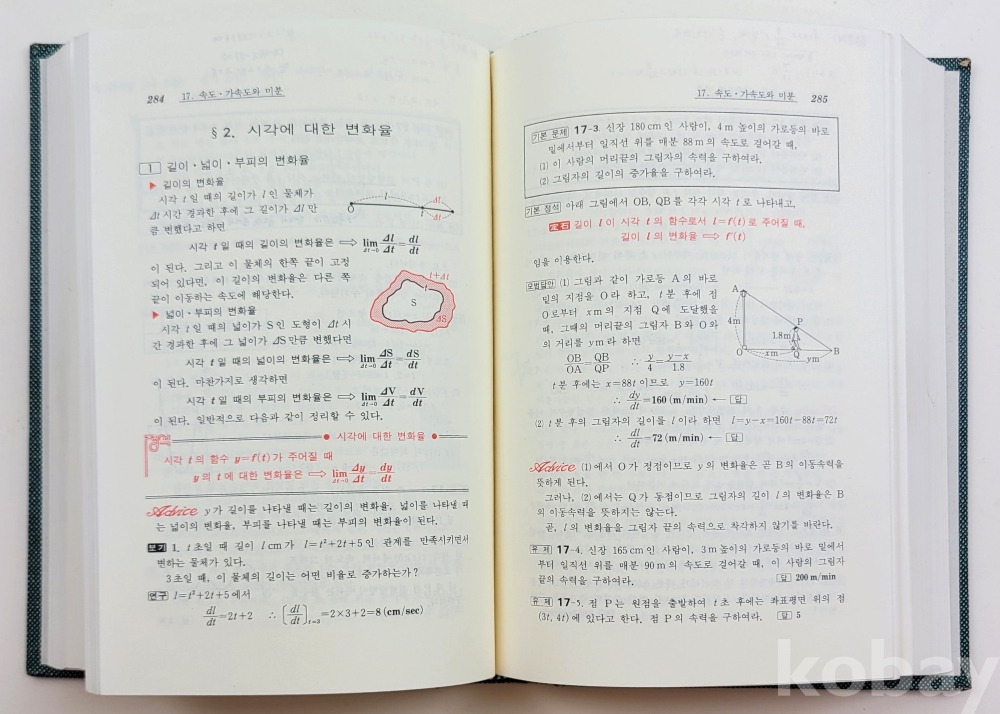 284 17. 속도·가속도와 미분
§ 2. 시각에 대한 변화율
1 길이·넓이·부피의 변화율
▶ 길이의 변화율
시각 t일 때의 길이가 l인 물체가
Δt시간 경과한 후에 그 길이가 Δl만
큼 변했다고 하면
O l t Δl Δt
시각 t일 때의 길이의 변화율은 ⟹ lim Δt→0 Δl/Δt = dl/dt
이 된다. 그리고 이 물체의 한쪽 끝이 고정
되어 있다면, 이 길이의 변화율은 다른 쪽
끝이 이동하는 속도에 해당한다.
t+Δt t S ΔS
▶ 넓이·부피의 변화율
시각 t일 때의 넓이가 S인 도형이 Δt시
간 경과한 후에 그 넓이가 ΔS만큼 변했다면
시각 t일 때의 넓이의 변화율은 ⟹ lim Δt→0 ΔS/Δt = dS/dt
이 된다. 마찬가지로 생각하면
시각 t일 때의 부피의 변화율은 ⟹ lim Δt→0 ΔV/Δt = dV/dt
이 된다. 일반적으로 다음과 같이 정리할 수 있다.
● 시각에 대한 변화율 ●
시각 t의 함수 y=f(t)가 주어질 때
y의 t에 대한 변화율은 ⟹ lim Δt→0 Δy/Δt = dy/dt
Advice y가 길이를 나타낼 때는 길이의 변화율, 넓이를 나타낼 때
는 넓이의 변화율, 부피를 나타낼 때는 부피의 변화율이 된다.
보기 1. t초일 때 길이 l cm가 l=t²+2t+5인 관계를 만족시키면서
변하는 물체가 있다.
3초일 때, 이 물체의 길이는 어떤 비율로 증가하는가?
연구 l=t²+2t+5에서
dl/dt=2t+2 ∴ [dl/dt]t=3=2×3+2=8 (cm/sec)
17. 속도·가속도와 미분 285
기본 문제 17-3. 신장 180cm인 사람이, 4m 높이의 가로등의 바로
밑에서부터 일직선 위를 매분 88m의 속도로 걸어갈 때,
(1) 이 사람의 머리끝의 그림자의 속력을 구하여라.
(2) 그림자의 길이의 증가율을 구하여라.
기본 정석 아래 그림에서 OB, QB를 각각 시각 t로 나타내고,
정석 길이 l이 시각 t의 함수로서 l=f(t)로 주어질 때,
길이 l의 변화율 ⟹ f′(t)
임을 이용한다.
모범답안 (1) 그림과 같이 가로등 A의 바로
밑의 지점을 O라 하고, t분 후에 점
O로부터 x m의 지점 Q에 도달했을
때, 그때의 머리끝의 그림자 B와 O와
의 거리를 y m라 하면
A 4m P 1.8m O x m Q y m B
OB/OA = QB/QP ∴ y/4 = y−x/1.8
t분 후에는 x=88t이므로 y=160t
∴ dy/dt=160 (m/min) ← 답
(2) t분 후의 그림자의 길이를 l이라 하면 l=y−x=160t−88t=72t
∴ dl/dt=72 (m/min) ← 답
Advice (1)에서 O가 정점이므로 y의 변화율은 곧 B의 이동속력을
뜻하게 된다.
그러나, (2)에서는 Q가 동점이므로 그림자의 길이 l의 변화율은 B
의 이동속력을 뜻하지는 않는다.
곧, l의 변화율을 그림자 끝의 속력으로 착각하지 않기를 바란다.
유제 17-4. 신장 165cm인 사람이, 3m 높이의 가로등의 바로 밑에서
부터 일직선 위를 매분 90m의 속도로 걸어갈 때, 이 사람의 그림자
끝의 속력을 구하여라. 답 200 m/min
유제 17-5. 점 P는 원점을 출발하여 t초 후에는 좌표평면 위의 점
(3t, 4t)에 있다고 한다. 점 P의 속력을 구하여라. 답 5
kobay